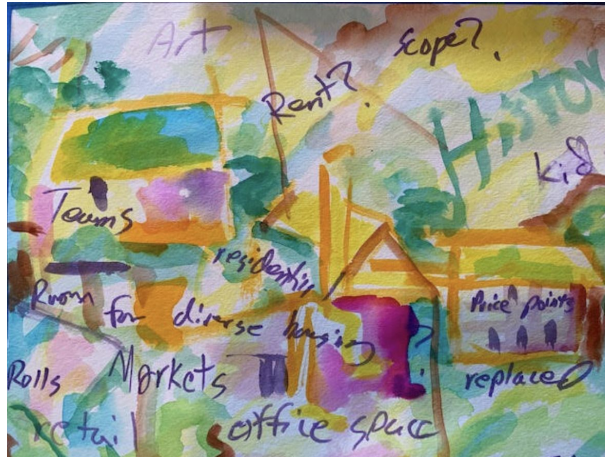 Art
scope?
Rent?
Histor
kid
Teams
residential
Room for diverse housing
Price points
Rolls
Markets
replaced
retail
office space